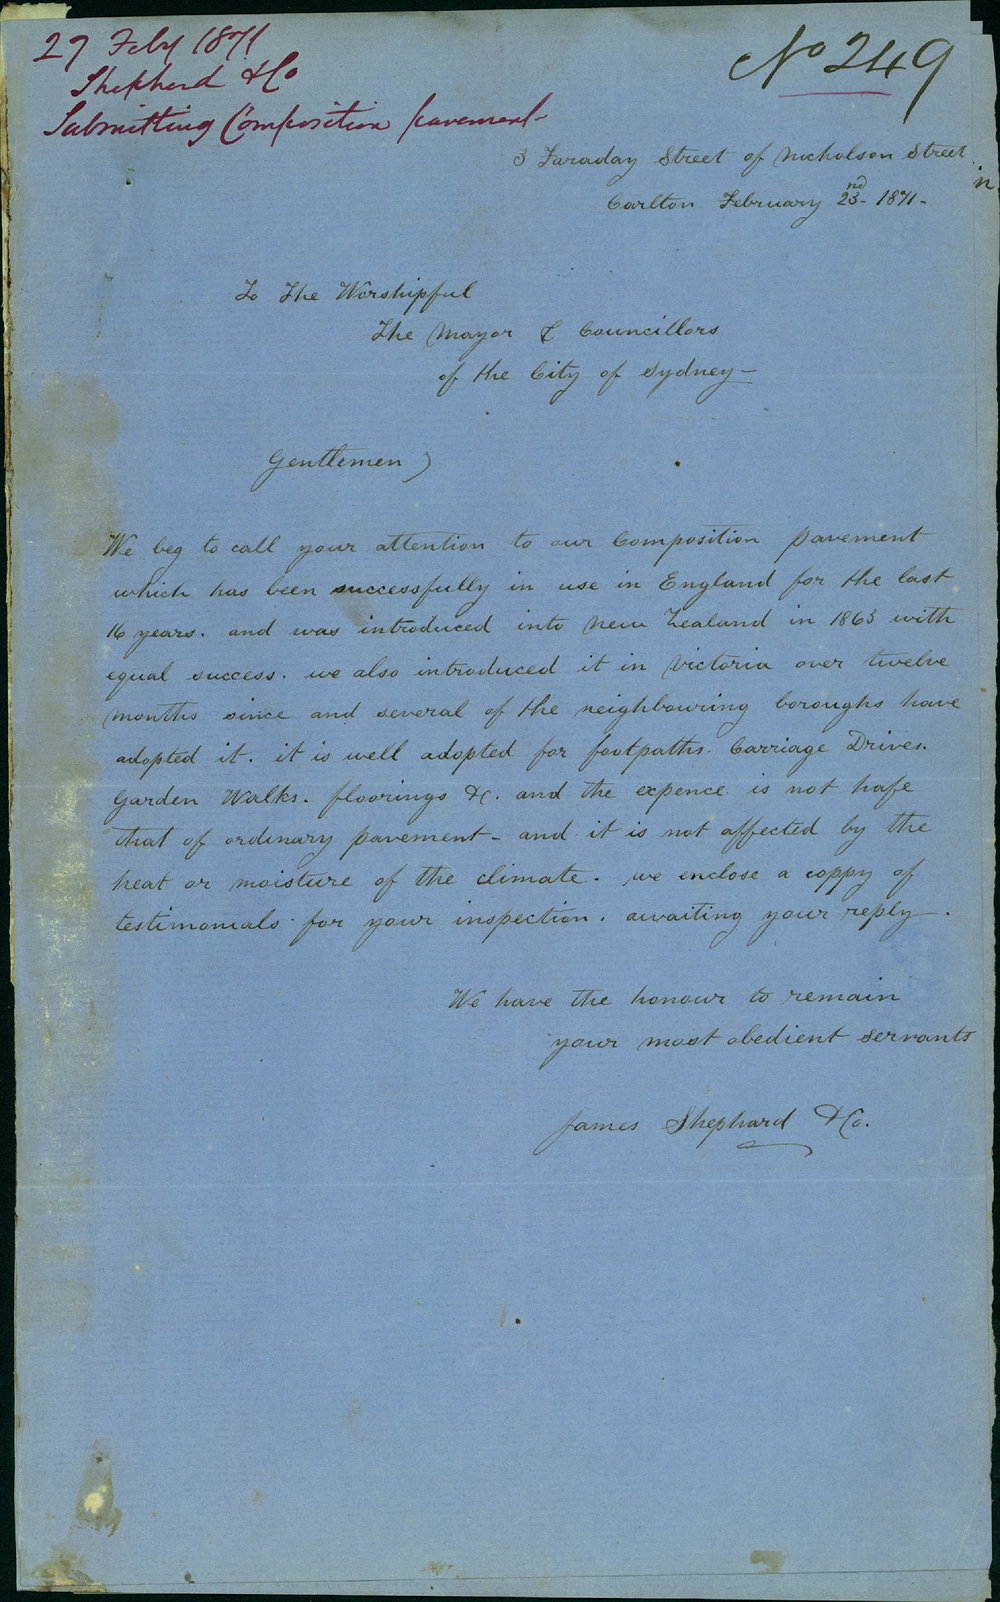 27 Feby 1871
Shepherd & Co
Submitting Composition pavement
No 249
3 Faraday Street of Nicholson Street
Carlton February 23nd 1871-
in
To The Worshipful
The Mayor & Councillors
of the City of Sydney-
Gentlemen)
We beg to call your attention to our Composition pavement
which has been successfully in use in England for the last
16 years. and was introduced into New Zealand in 1863 with
equal success. we also introduced it in Victoria over twelve
months since and several of the neighbouring boroughs have
adopted it. it is well adopted for footpaths. Carriage Drives.
Garden Walks. floorings &c. and the expence is not hafe
that of ordinary pavement- and it is not affected by the
heat or moisture of the climate. we enclose a coppy of
testimonials for your inspection. awaiting your reply.
We have the honour to remain
your most obedient servants
James Shephard & Co.